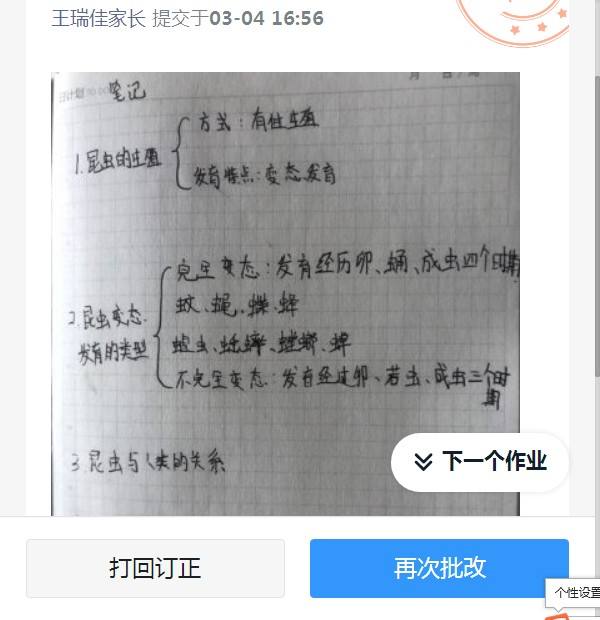 王瑞佳家长 提交于03-04 16:56
笔记
1.昆虫的生殖
方式：有性生殖
发育特点：变态发育
2.昆虫变态
发育的类型
完全变态：发育经历卵、蛹、成虫四个时期
蚊、蝇、蝶、蜂
蝗虫、蟋蟀、螳螂、蝉
不完全变态：发育经过卵、若虫、成虫三个时
期
3.昆虫与人类的关系
下一个作业
打回订正
再次批改
个性设置